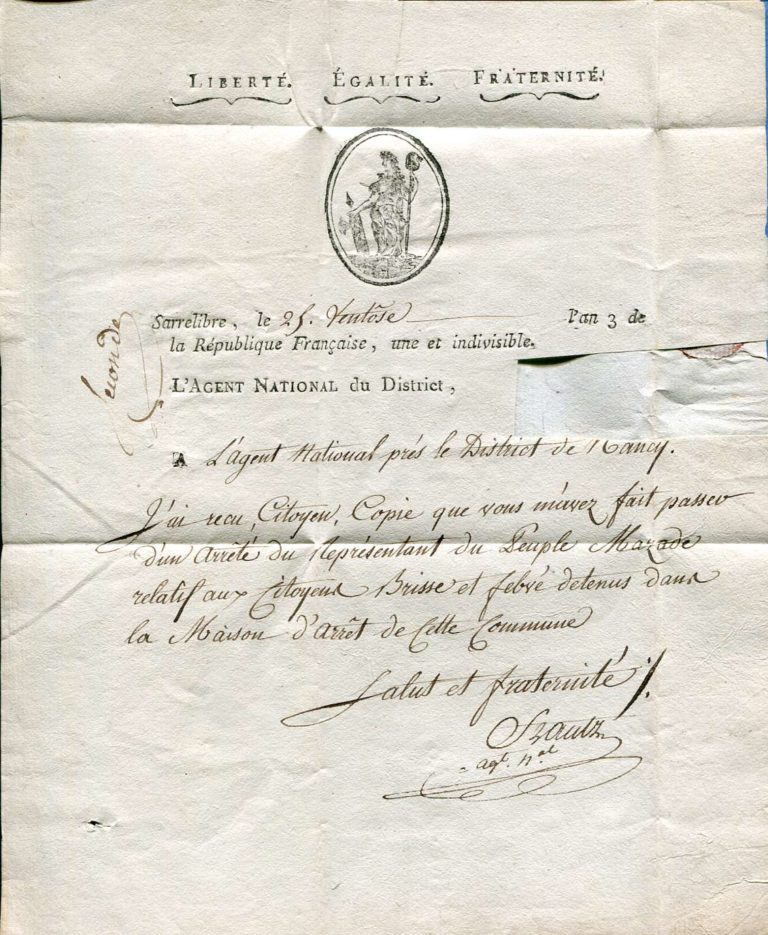 LIBERTÉ. ÉGALITÉ. FRATERNITÉ.
Sarrelibre, le 25. Ventôse l'an 3 de
la République Française, une et indivisible.
L'AGENT NATIONAL du District,
A L'agent National prés le District de Nancy.
J'ai recu, Citoyen, Copie que vous m'avez fait passer
d'un Arrêté du Représentant du Peuple Mazade
relatif aux Citoyens Brisse et febvé detenus dans
la Maison d'Arrêt de Cette Commune
Salut et fraternité
agt. nal